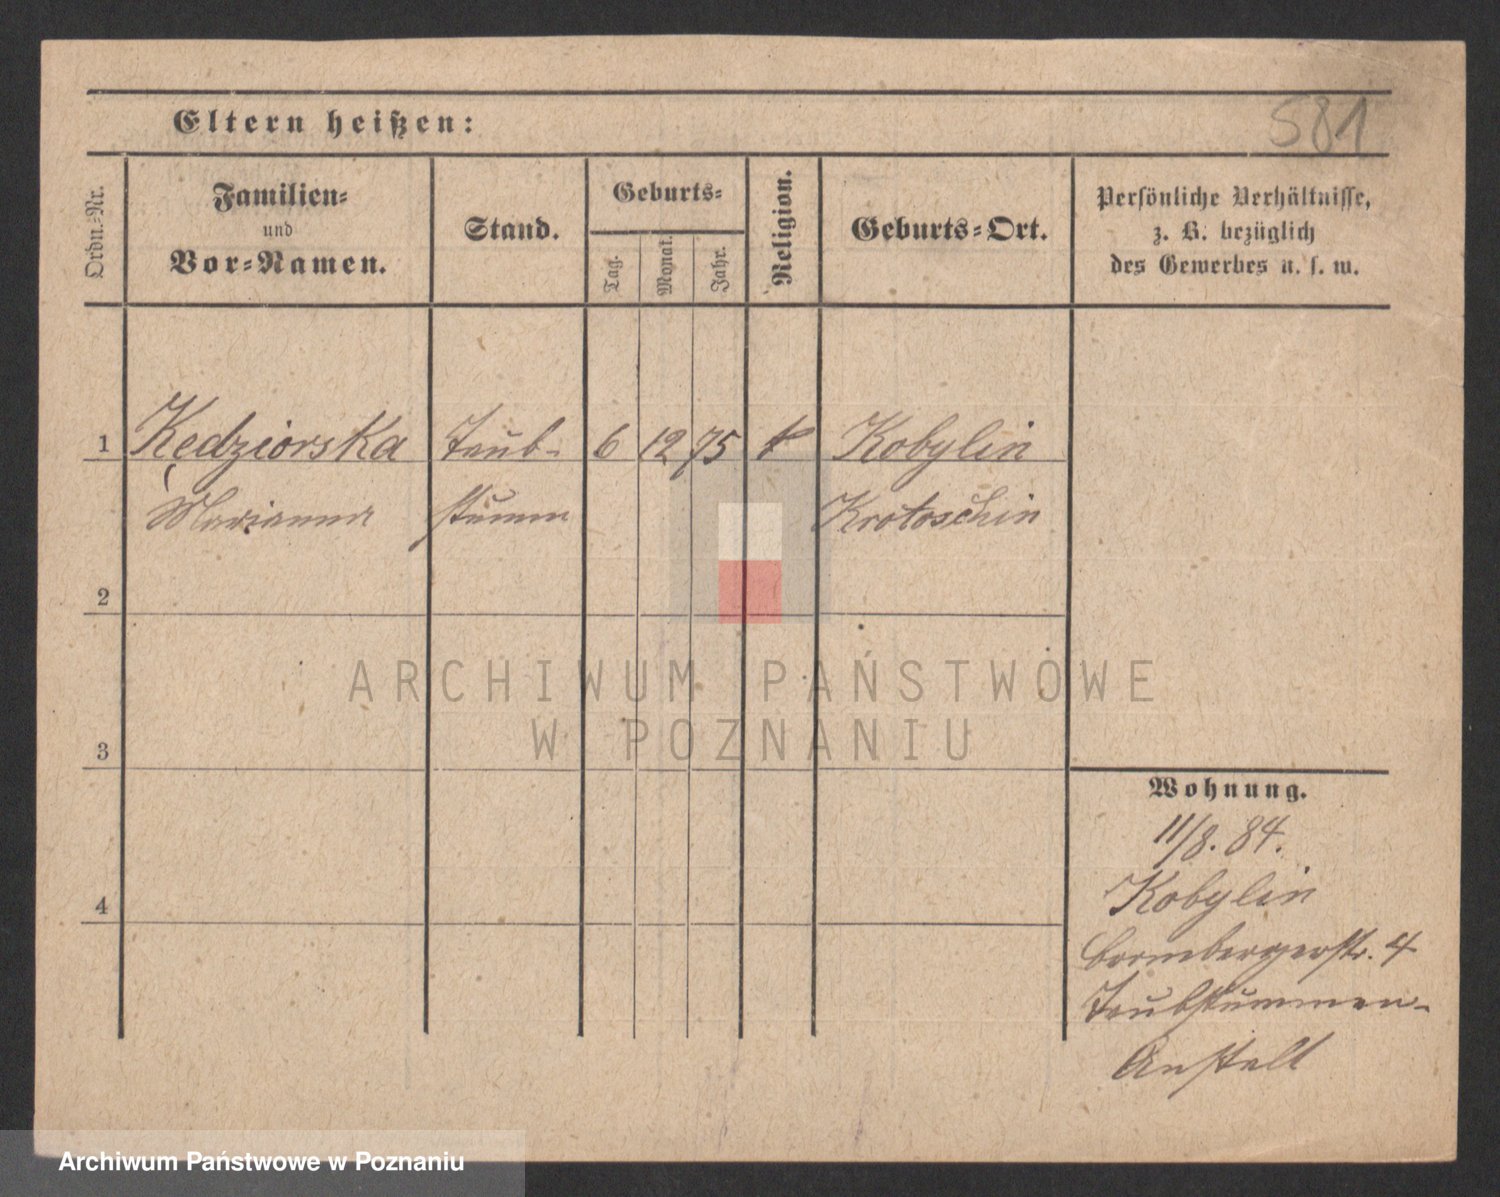 581
Eltern heißen:
Ordn.-Nr.
Familien-
und
Vor-Namen.
Stand.
Geburts-
Tag.
Monat.
Jahr.
Religion.
Geburts-Ort.
Persönliche Verhältnisse,
z. B. bezüglich
des Gewerbes u. s. w.
1 Kędziorska Taub- 6 12 75 k Kobylin
Marianna stumm Krotoschin
2
3
4
Wohnung.
11/8. 84.
Kobylin
Brombergerstr. 4
Taubstummen-
Anstalt
ARCHIWUM PAŃSTWOWE
W POZNANIU
Archiwum Państwowe w Poznaniu